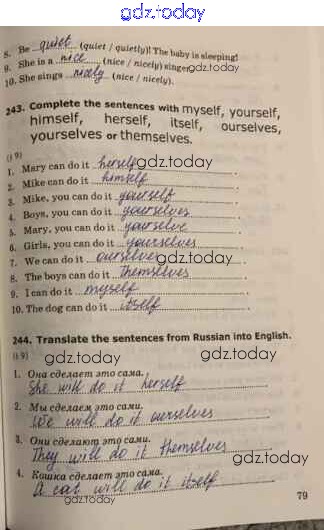 gdz.today
8. Be quiet (quiet / quietly)! The baby is sleeping!
9. She is a nice (nice / nicely) singer.
gdz.today
10. She sings nicely (nice / nicely).
243. Complete the sentences with myself, yourself,
himself, herself, itself, ourselves,
yourselves or themselves.
gdz.today
1. Mary can do it herself.
2. Mike can do it himself.
3. Mike, you can do it yourself.
4. Boys, you can do it yourselves.
5. Mary, you can do it yourselve.
6. Girls, you can do it yourselves.
7. We can do it ourselves.
gdz.today
8. The boys can do it themselves.
9. I can do it myself.
10. The dog can do it itself.
244. Translate the sentences from Russian into English.
gdz.today gdz.today
1. Она сделает это сама.
She will do it herself
2. Мы сделаем это сами.
We will do it ourselves
3. Они сделают это сами.
They will do it themselves
gdz.today
4. Кошка сделает это сама.
A cat will do it itself
79
gdz.today